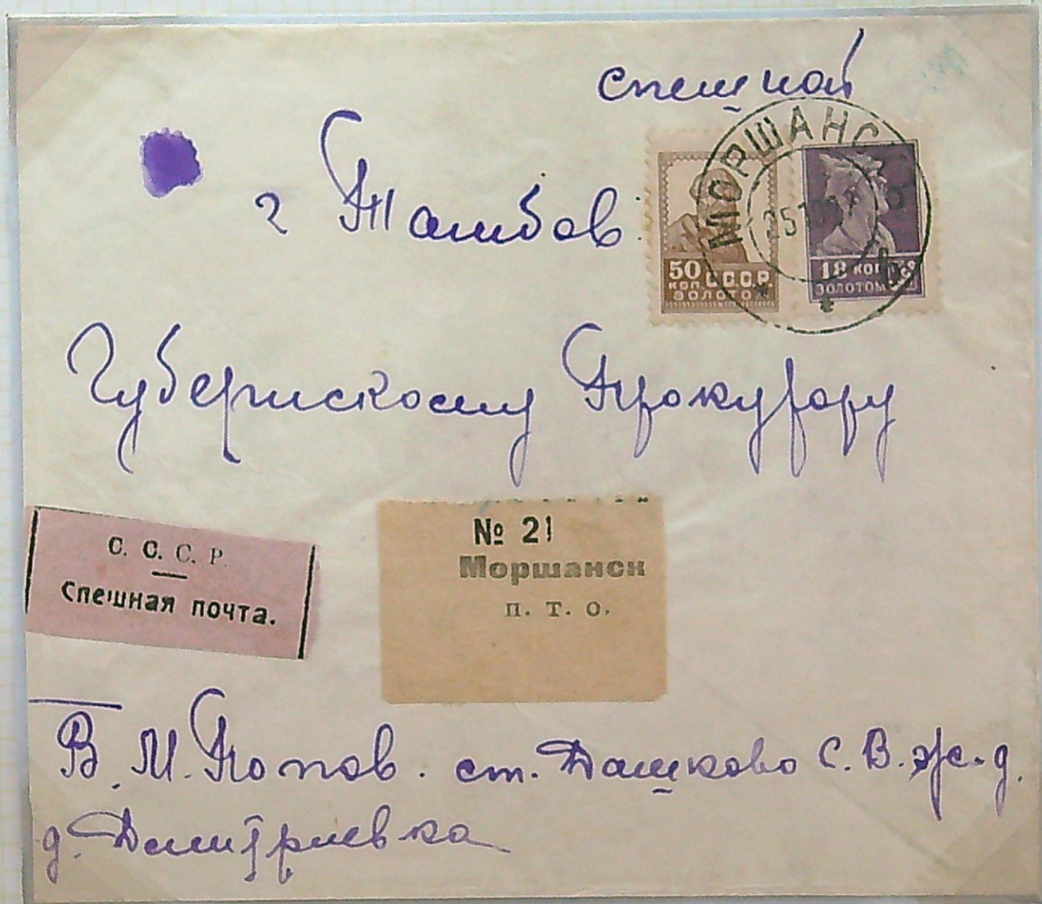 спешной
г Тамбов
МОРШАНСК
50 КОП. С.С.С.Р. ЗОЛОТОМ
18 КОП ЗОЛОТОМ
Губернскому Прокурору
С. С. С. Р.
Спешная почта.
№ 21
Моршанск
п. т. о.
В. М. Попов. ст. Дашково С. В. ж. д.
д. Дмитриевка